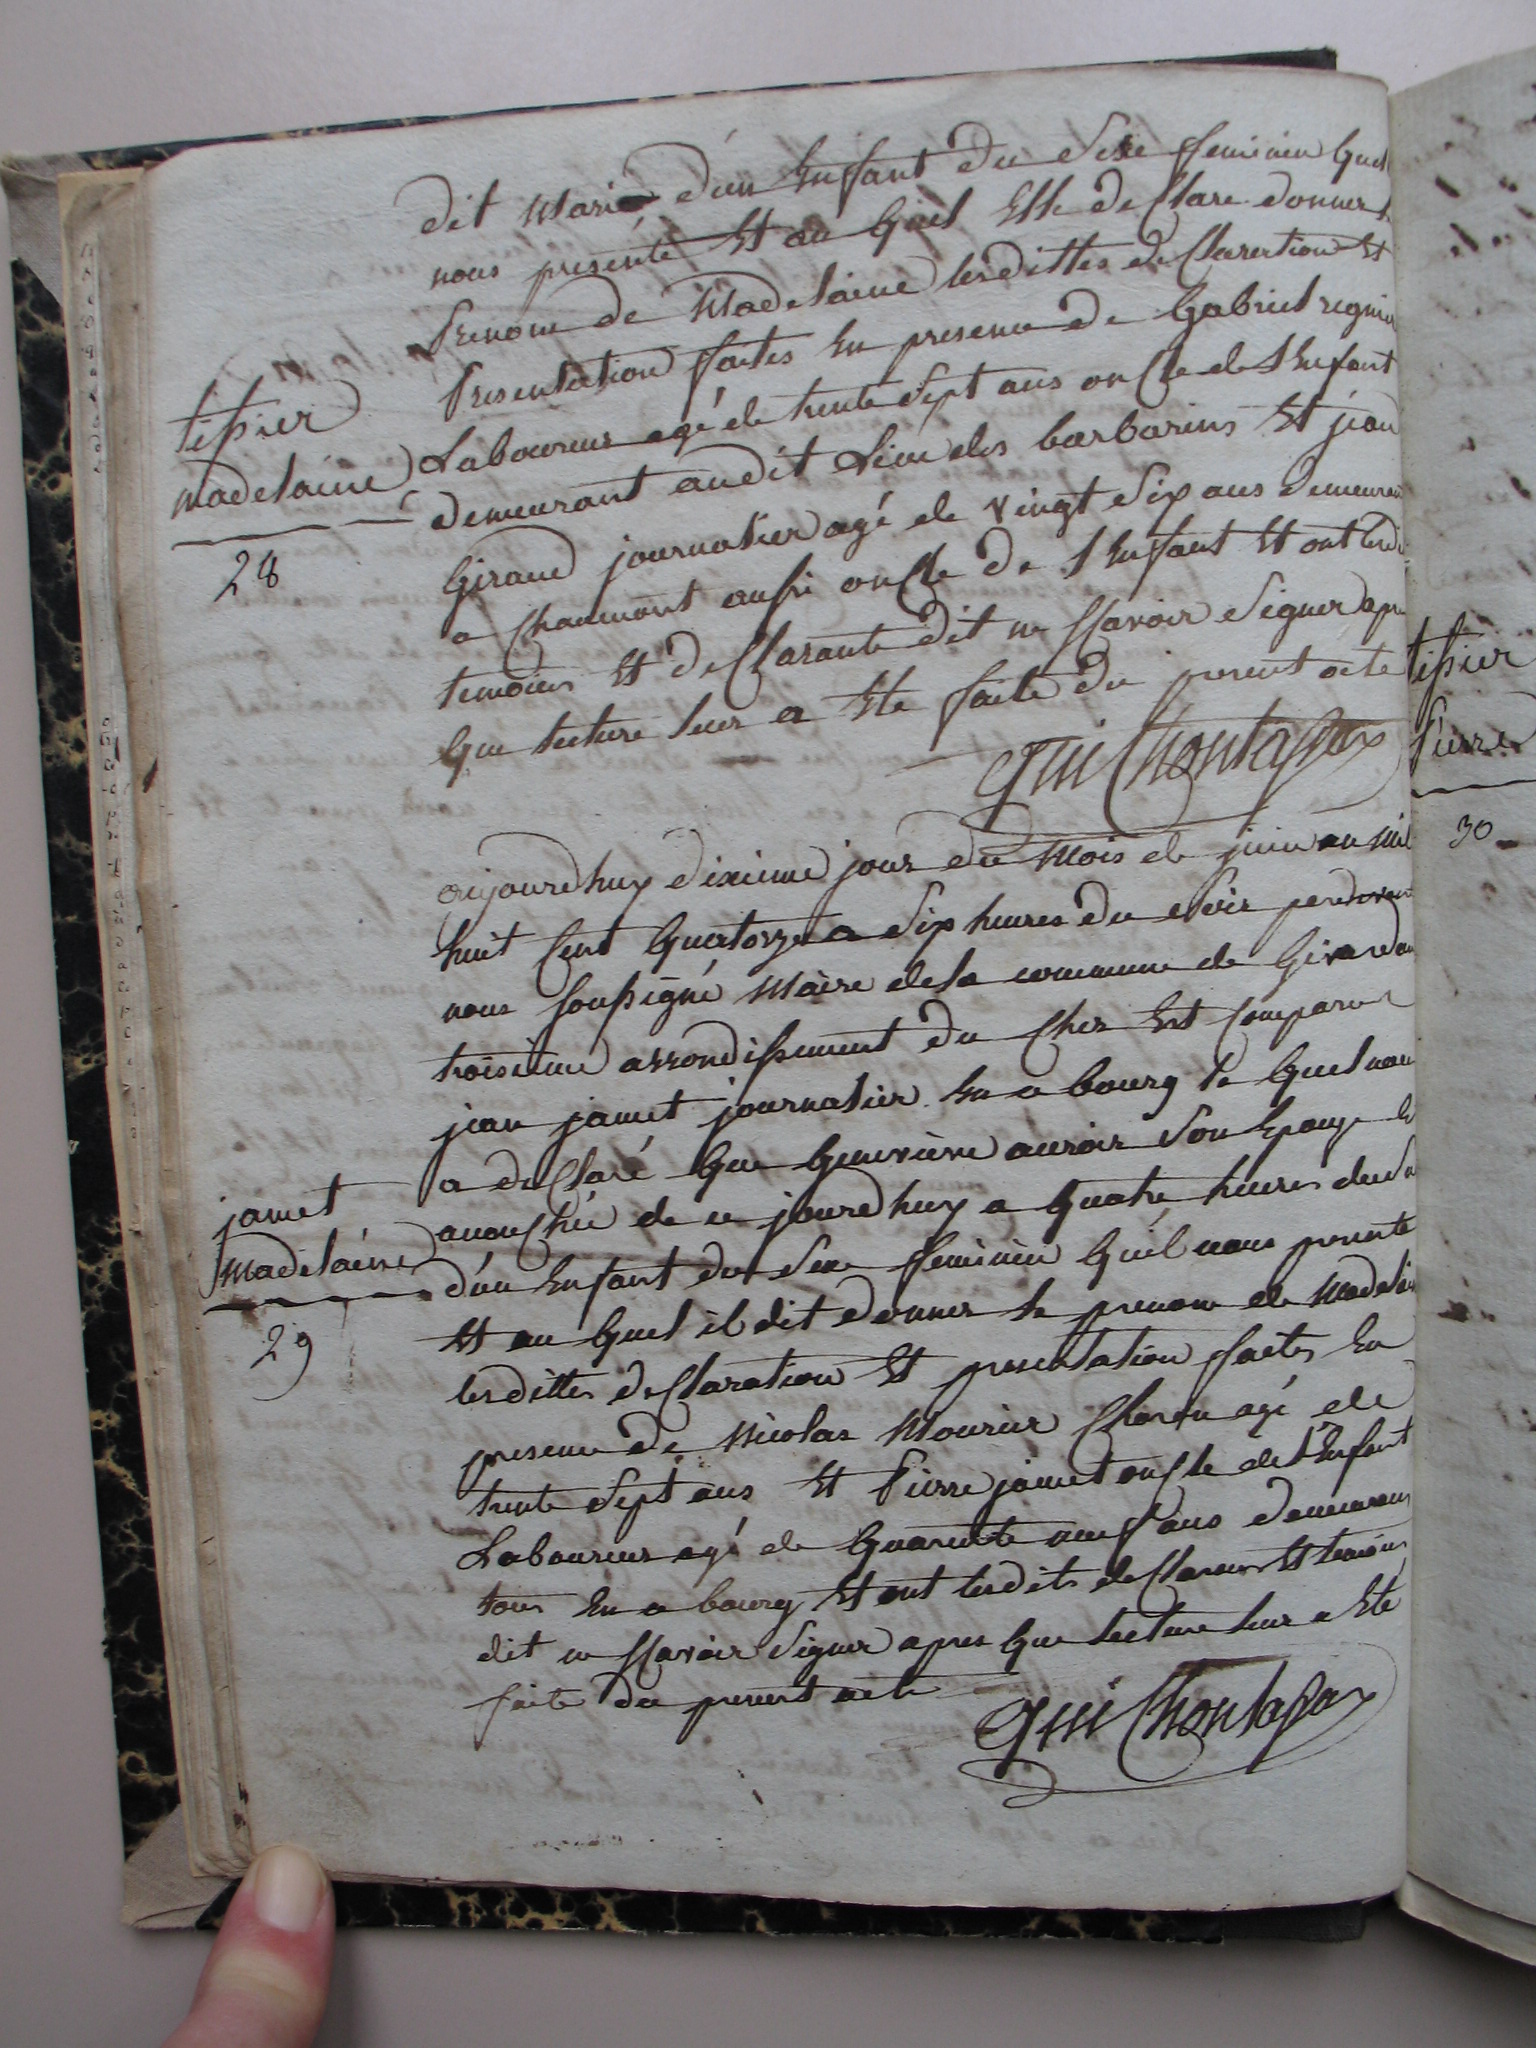 dit Marie d'un Enfant du Sexe feminin quel
nous présenté Et au quel Elle declare donner le
Prenom de Madelaine lesdittes declaration Et
Presentation faites En presence de Gabriel regnier
tissier
Laboureur agé de trente Sept ans oncle de l'Enfant
madelaine
demeurant audit Lieu des barbarins Et jean
28
Giraud journalier agé de vingt Six ans demeurant
a Chaumont aussi oncle de l Enfant Et ont lesdit
temoins Et declarante dit ne scavoir Signer apres
que lecture leur a Ete faite du present acte
gui Chontapax
aujourdhuy dixieme jour du Mois de juin an mil
huit Cent quatorze a Six heures du Soir pardevant
nous soussigné Maire dela commune de Givardon
troisieme arrondissement du Cher Est Comparu
jean jamet journalier En ce bourg le quel nous
a declaré que Genevieve auroir Son Epouze Est
jamet
accouchée de ce jourdhuy a quatre heures du
madelaine
d'un Enfant du Sexe feminin qu'il nous presente
29
Et au quel il dit donner le prenom de Madelaine
lesdittes declaration Et presentation faites En
presence de Nicolas Mourier Charon agé de
trente Sept ans Et Pierre jamet oncle de l'Enfant
Laboureur agé de quarente neuf ans demeurans
tous En ce bourg Et ont lesdits declarans Et temoins
dit ne scavoir Signer apres que lecture leur a Ete
faite du present acte
gui Chontapax
tissier
Pierre
30